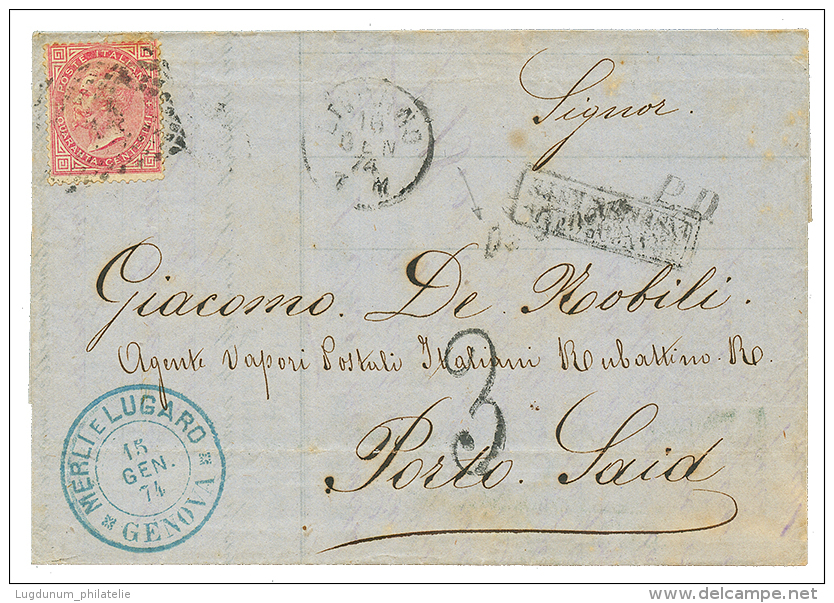 POSTE ITALIANE
QUARANTA CENTESIMI
16
GEN
74
7 M
Signor.
P.D
Giacomo. De Nobili.
Agente Vapori Postali Italiani Rubattino. R.
3
Porto. Said
MERLI E LUGARO
15
GEN.
74
GENOVA
Lugdunum_philatelie
delcampe.net